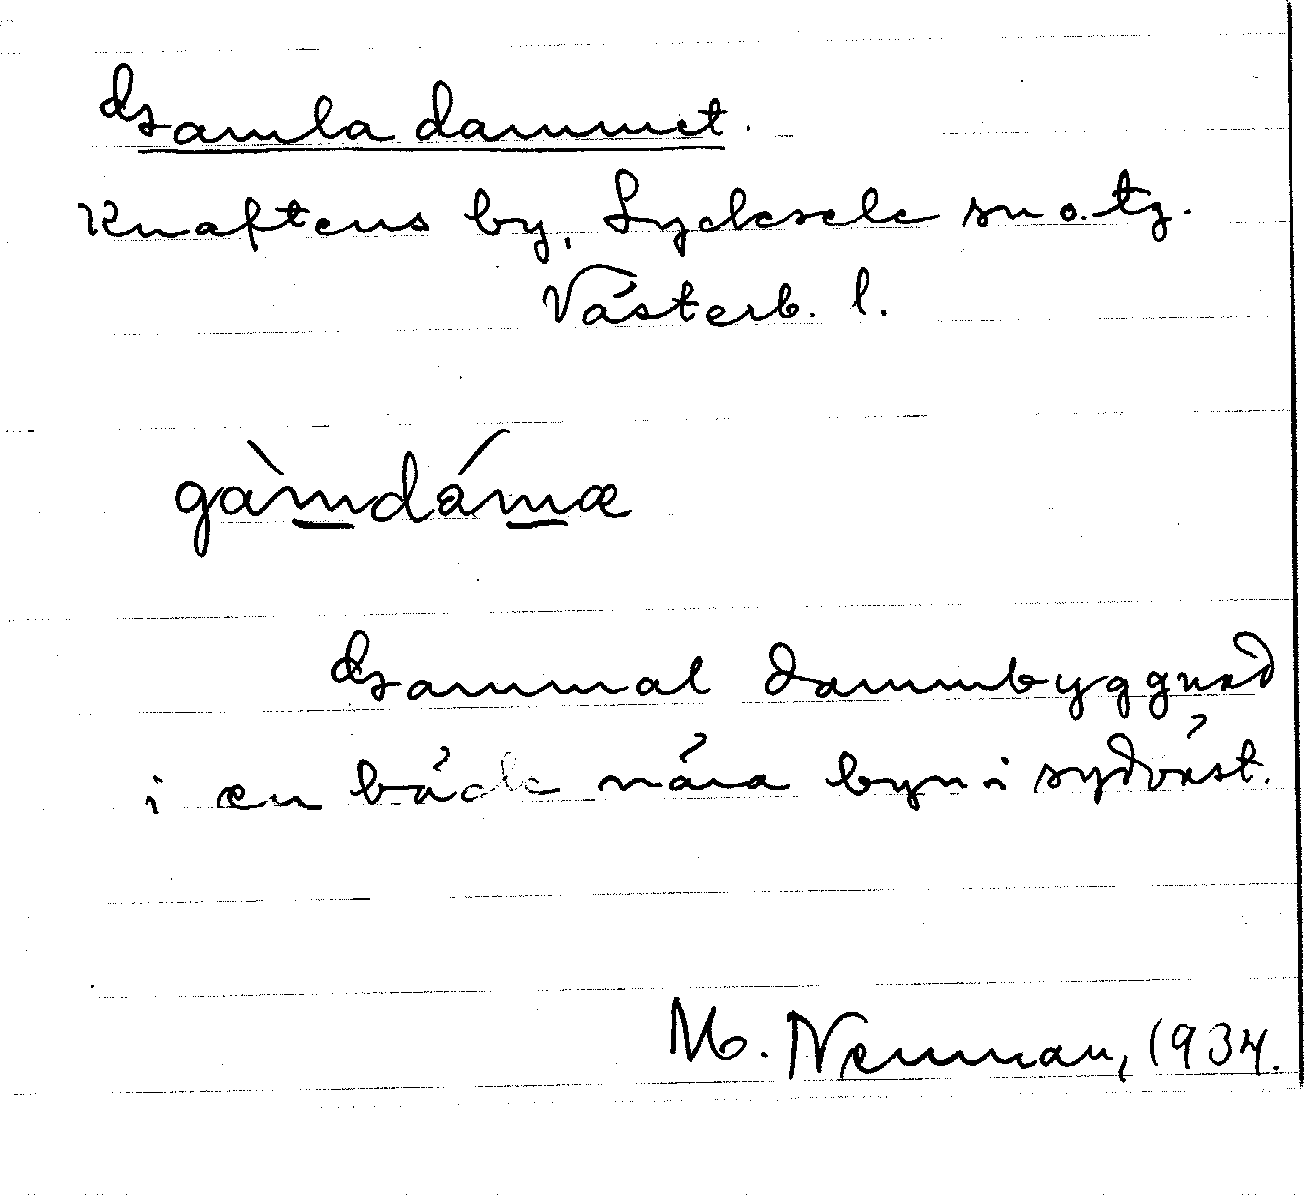 Gamla dammet.
Knaftens by, Lycksele sn o. tg.
Västerb. l.
gàmdámæ
Gammal dammbyggnad
i en bäck nära byn i sydväst.
M. Nenman, 1934.